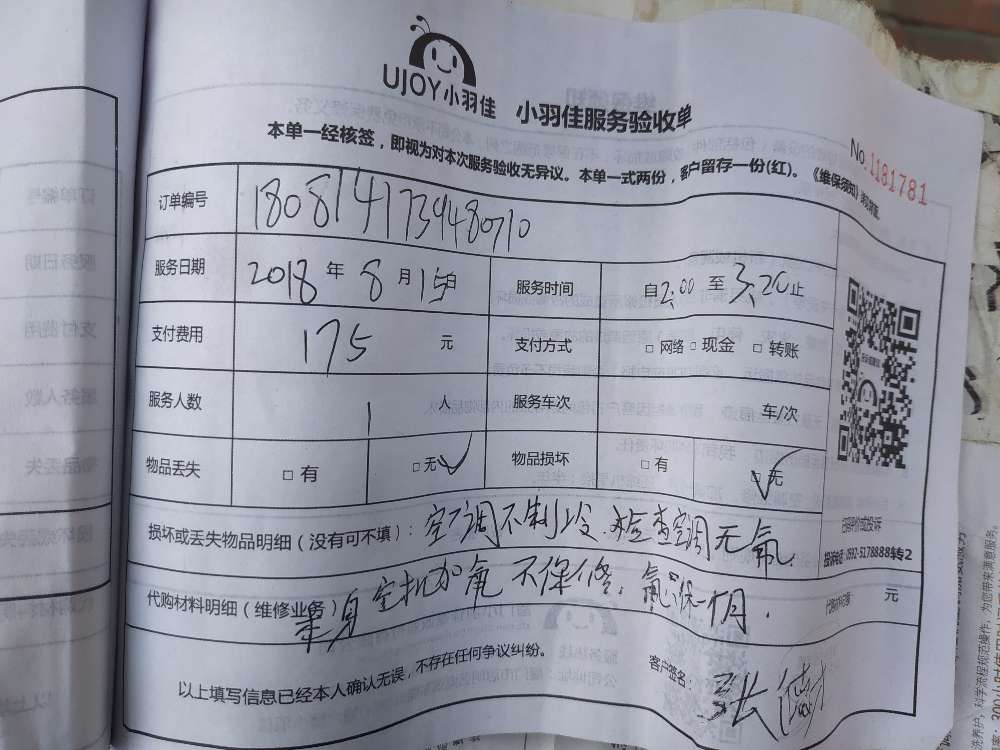 UJOY小羽佳 小羽佳服务验收单
No.1181781
本单一经核签，即视为对本次服务验收无异议。本单一式两份，客户留存一份(红)。《维保须知》
订单编号 1808141739480710
服务日期 2018年8月15日 服务时间 自2:00至3:20止
支付费用 175元 支付方式 □网络 □现金 □转账
服务人数 1人 服务车次 车/次
物品丢失 □有 □无✓ 物品损坏 □有 □无✓
损坏或丢失物品明细（没有可不填）：空调不制冷.检查空调无氟.
代购材料明细（维修业务） 空机加氟不保修，氟保一个月. 元
以上填写信息已经本人确认无误，不存在任何争议纠纷。
客户签名： 张
投诉电话：0592-5178888转2